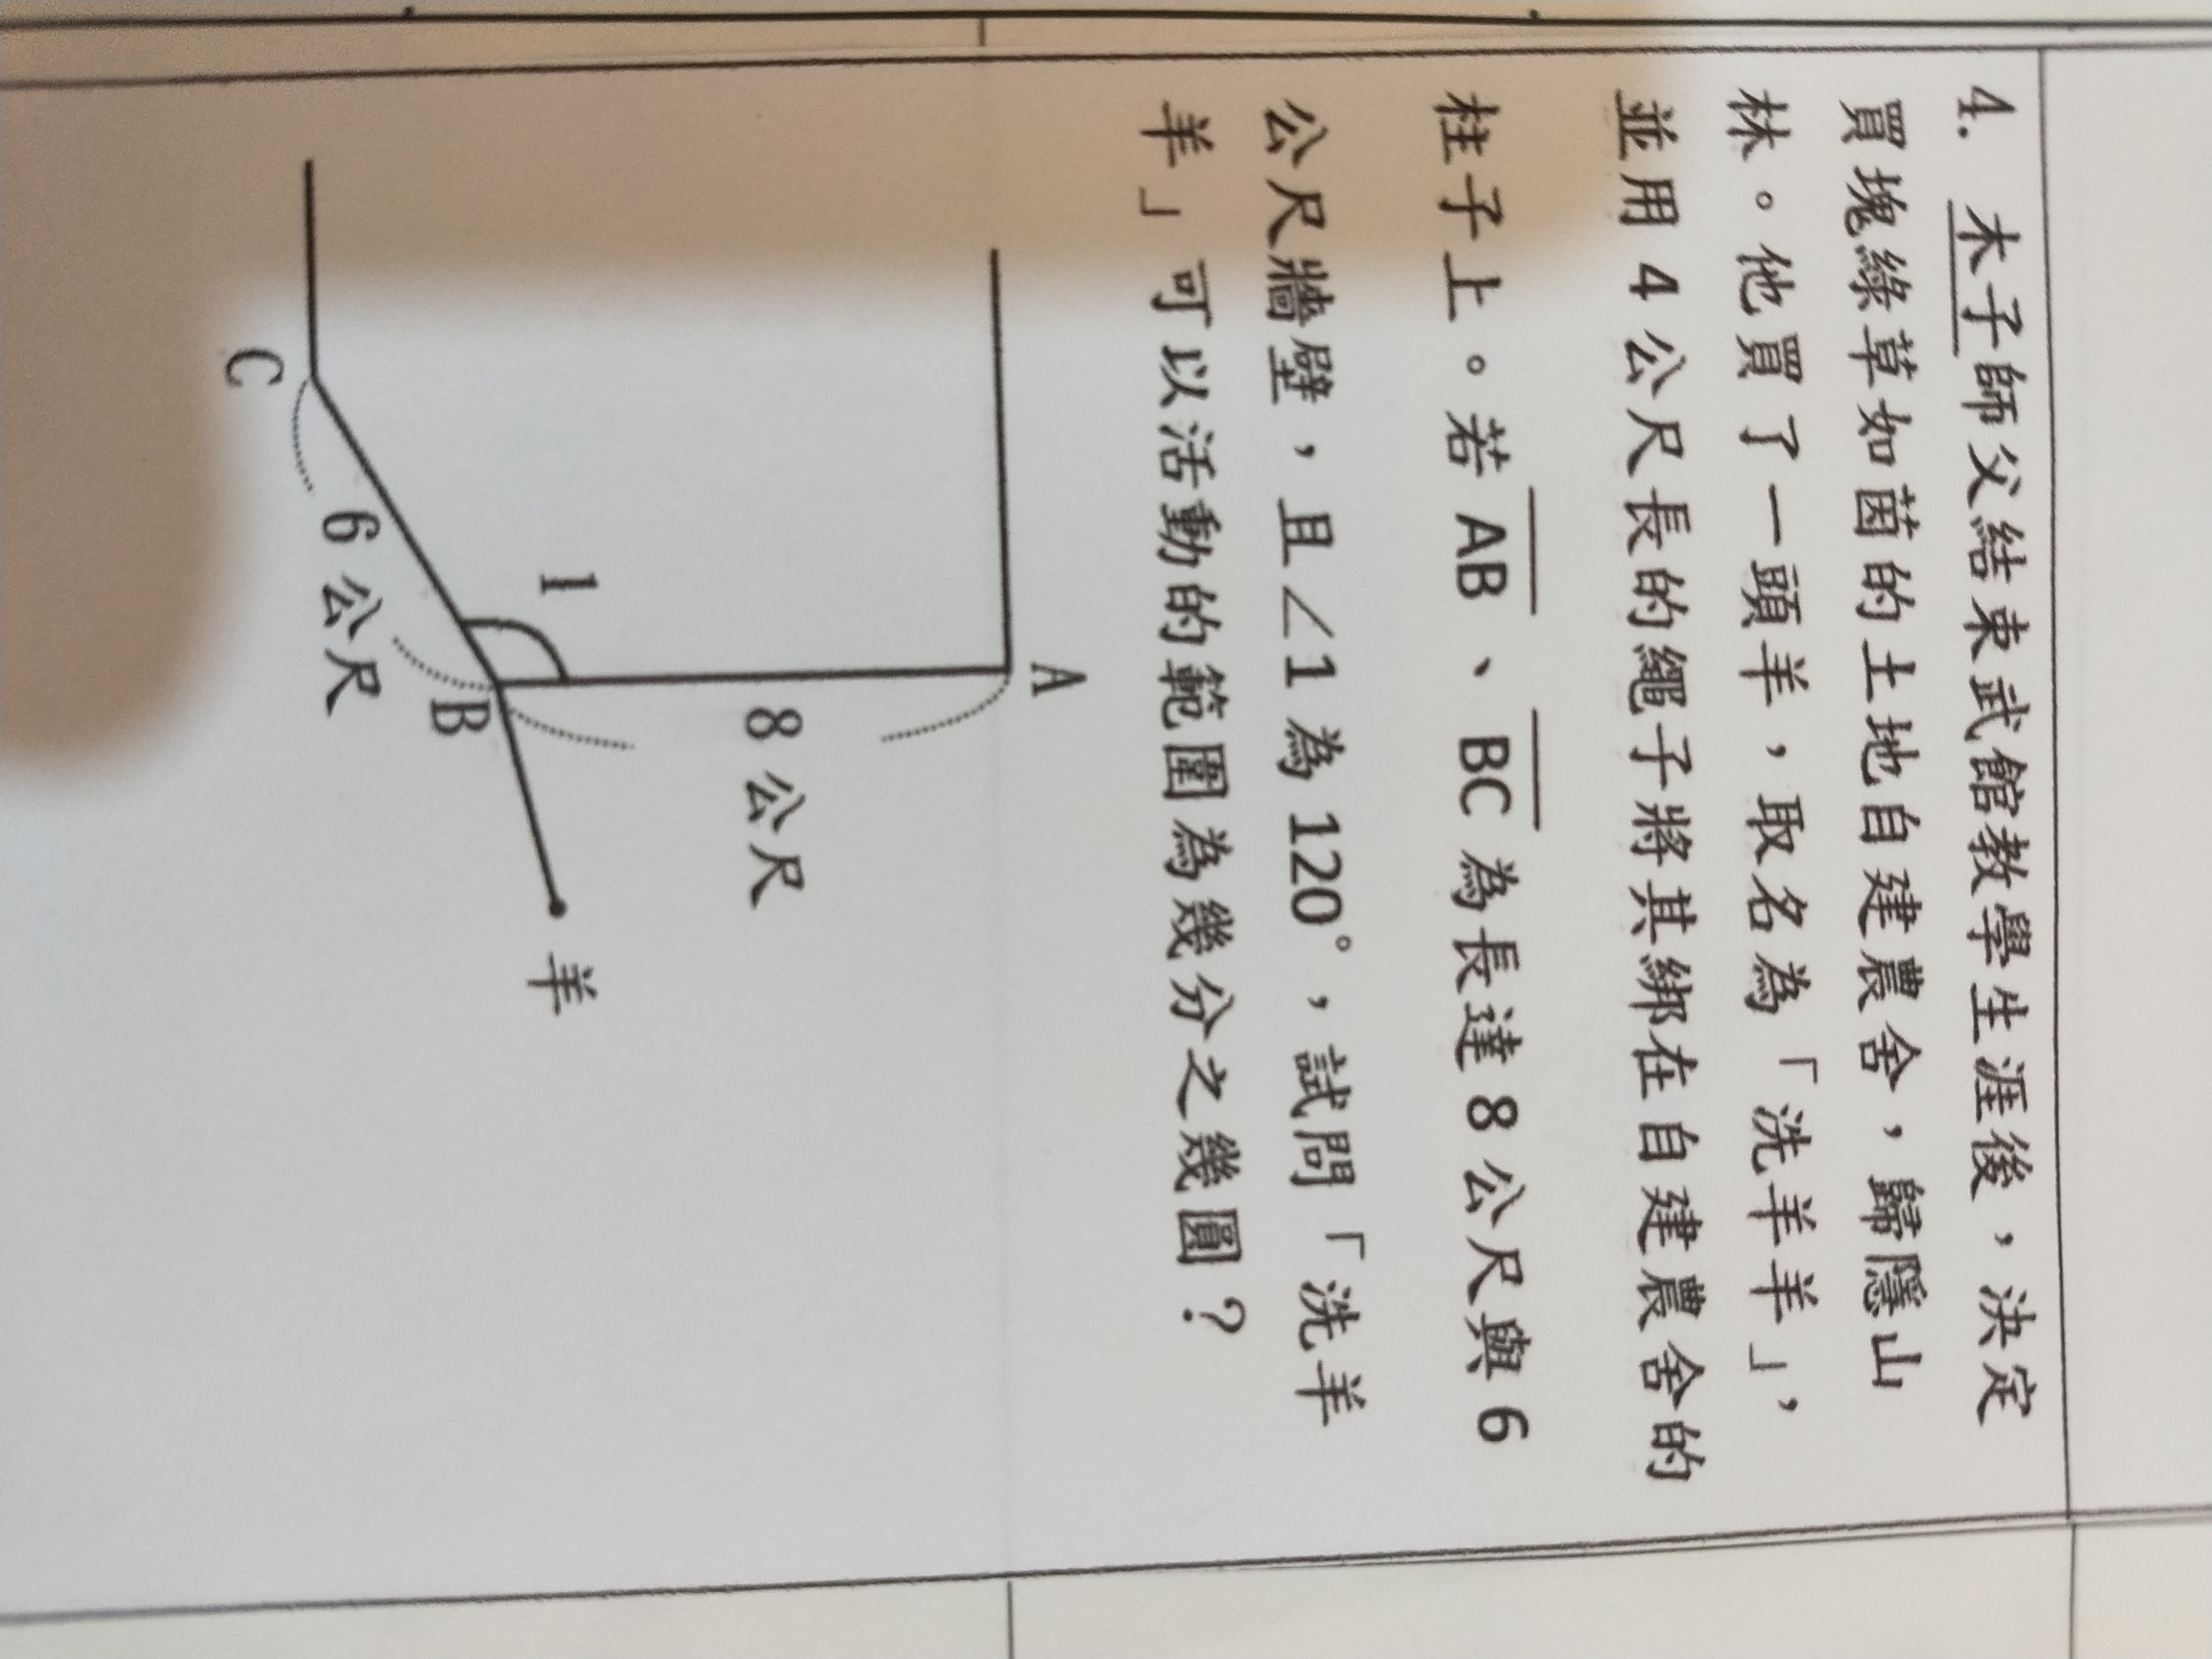 4. 木子師父結束武館教學生涯後，決定
買塊綠草如茵的土地自建農舍，歸隱山
林。他買了一頭羊，取名為「洗羊羊」，
並用 4 公尺長的繩子將其綁在自建農舍的
柱子上。若 AB 、BC 為長達 8 公尺與 6
公尺牆壁，且∠1 為 120°，試問「洗羊
羊」可以活動的範圍為幾分之幾圓？
A
8 公尺
1
B
6 公尺
C
羊